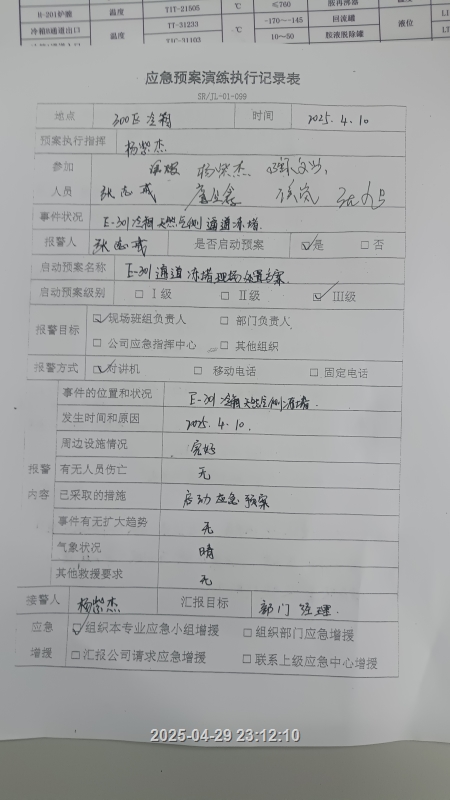 H-201炉膛 温度 TIT-21505 ℃ ≤760 胺再沸器
冷箱B通道出口 温度 TT-31233 ℃ -170~-145 回流罐 液位
TIC-31103 ℃ 10~50 胺液脱除罐
应急预案演练执行记录表
SR/JL-01-099
地点 300区冷箱 时间 2025.4.10
预案执行指挥 杨崇杰
参加 杨崇杰
人员 张志成
事件状况 E-301冷箱天然气侧通道冻堵
报警人 张志成 是否启动预案 ☑是 □否
启动预案名称 E-301通道冻堵现场处置方案
启动预案级别 □Ⅰ级 □Ⅱ级 ☑Ⅲ级
报警目标 ☑现场班组负责人 □部门负责人
□公司应急指挥中心 □其他组织
报警方式 ☑对讲机 □移动电话 □固定电话
事件的位置和状况 E-301冷箱天然气侧冻堵.
发生时间和原因 2025.4.10.
周边设施情况 完好
报警 有无人员伤亡 无
内容 已采取的措施 启动应急预案
事件有无扩大趋势 无
气象状况 晴
其他救援要求 无
接警人 杨崇杰 汇报目标 部门经理.
应急 ☑组织本专业应急小组增援 □组织部门应急增援
增援 □汇报公司请求应急增援 □联系上级应急中心增援
2025-04-29 23:12:10